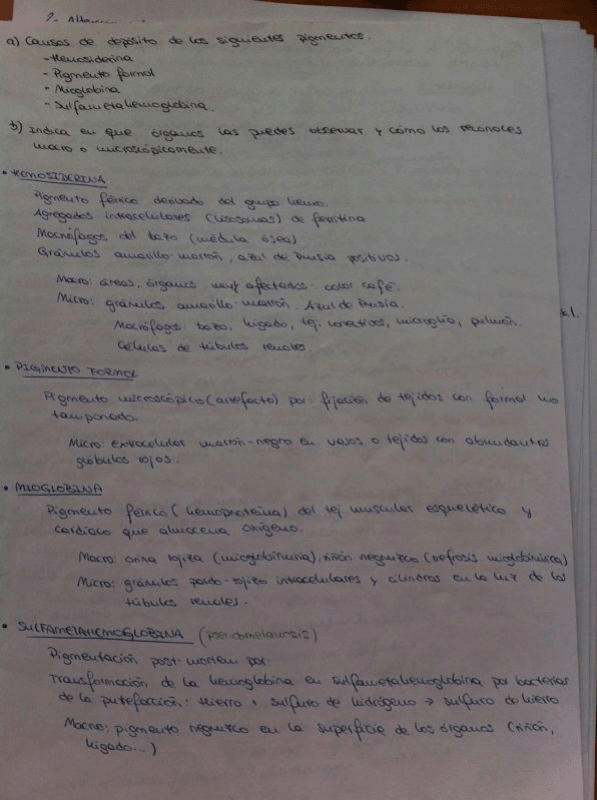 a) Causas de depósito de los siguientes pigmentos.
- Hemosiderina
- Pigmento formol
- Mioglobina
- Sulfametahemoglobina.
b) Indica en que órganos las puedes observar y cómo los reconoces
macro o microscópicamente.
• HEMOSIDERINA
Pigmento férrico derivado del grupo hemo.
Agregados intracelulares (lisosomas) de ferritina
Macrófagos del bazo (médula ósea)
Gránulos amarillo-marrón, azul de Prusia positivos.
Macro: áreas, órganos muy afectados color café.
Micro: gránulos amarillo-marrón. Azul de Prusia.
Macrófagos: bazo, hígado, tej. conectivos, microglía, pulmón.
Células de túbulos renales.
• PIGMENTO FORMOL
Pigmento microscópico (artefacto) por fijación de tejidos con formol no
tamponado.
Micro: extracelular marrón-negro en vasos o tejidos con abundantes
glóbulos rojos.
• MIOGLOBINA
Pigmento férrico (hemoproteína) del tej muscular esquelético y
cardíaco que almacena oxígeno.
Macro: orina rojiza (mioglobinuria), riñón negruzco (nefrosis mioglobinúrica)
Micro: gránulos pardo-rojizo intracelulares y cilindros en la luz de los
túbulos renales.
• SULFAMETAHEMOGLOBINA (pseudomelanosis)
Pigmentación post-mortem por:
Transformación de la hemoglobina en sulfametahemoglobina por bacterias
de la putrefacción: Hierro + sulfuro de hidrógeno → sulfuro de hierro
Macro: pigmento negruzco en la superficie de los órganos (riñón,
hígado...)